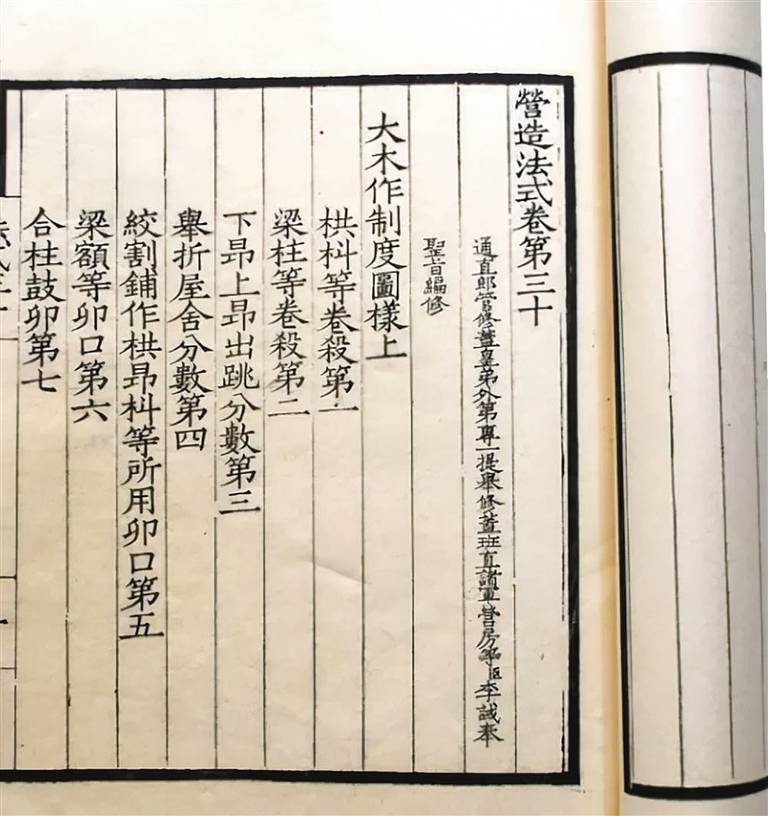 營造法式卷第三十
通直郎管修蓋皇弟外第專一提舉修蓋班直諸軍營房等臣李誡奉
聖旨編修
大木作制度圖樣上
栱枓等卷殺第一
梁柱等卷殺第二
下昂上昂出跳分數第三
舉折屋舍分數第四
絞割鋪作栱昂枓等所用卯口第五
梁額等卯口第六
合柱鼓卯第七